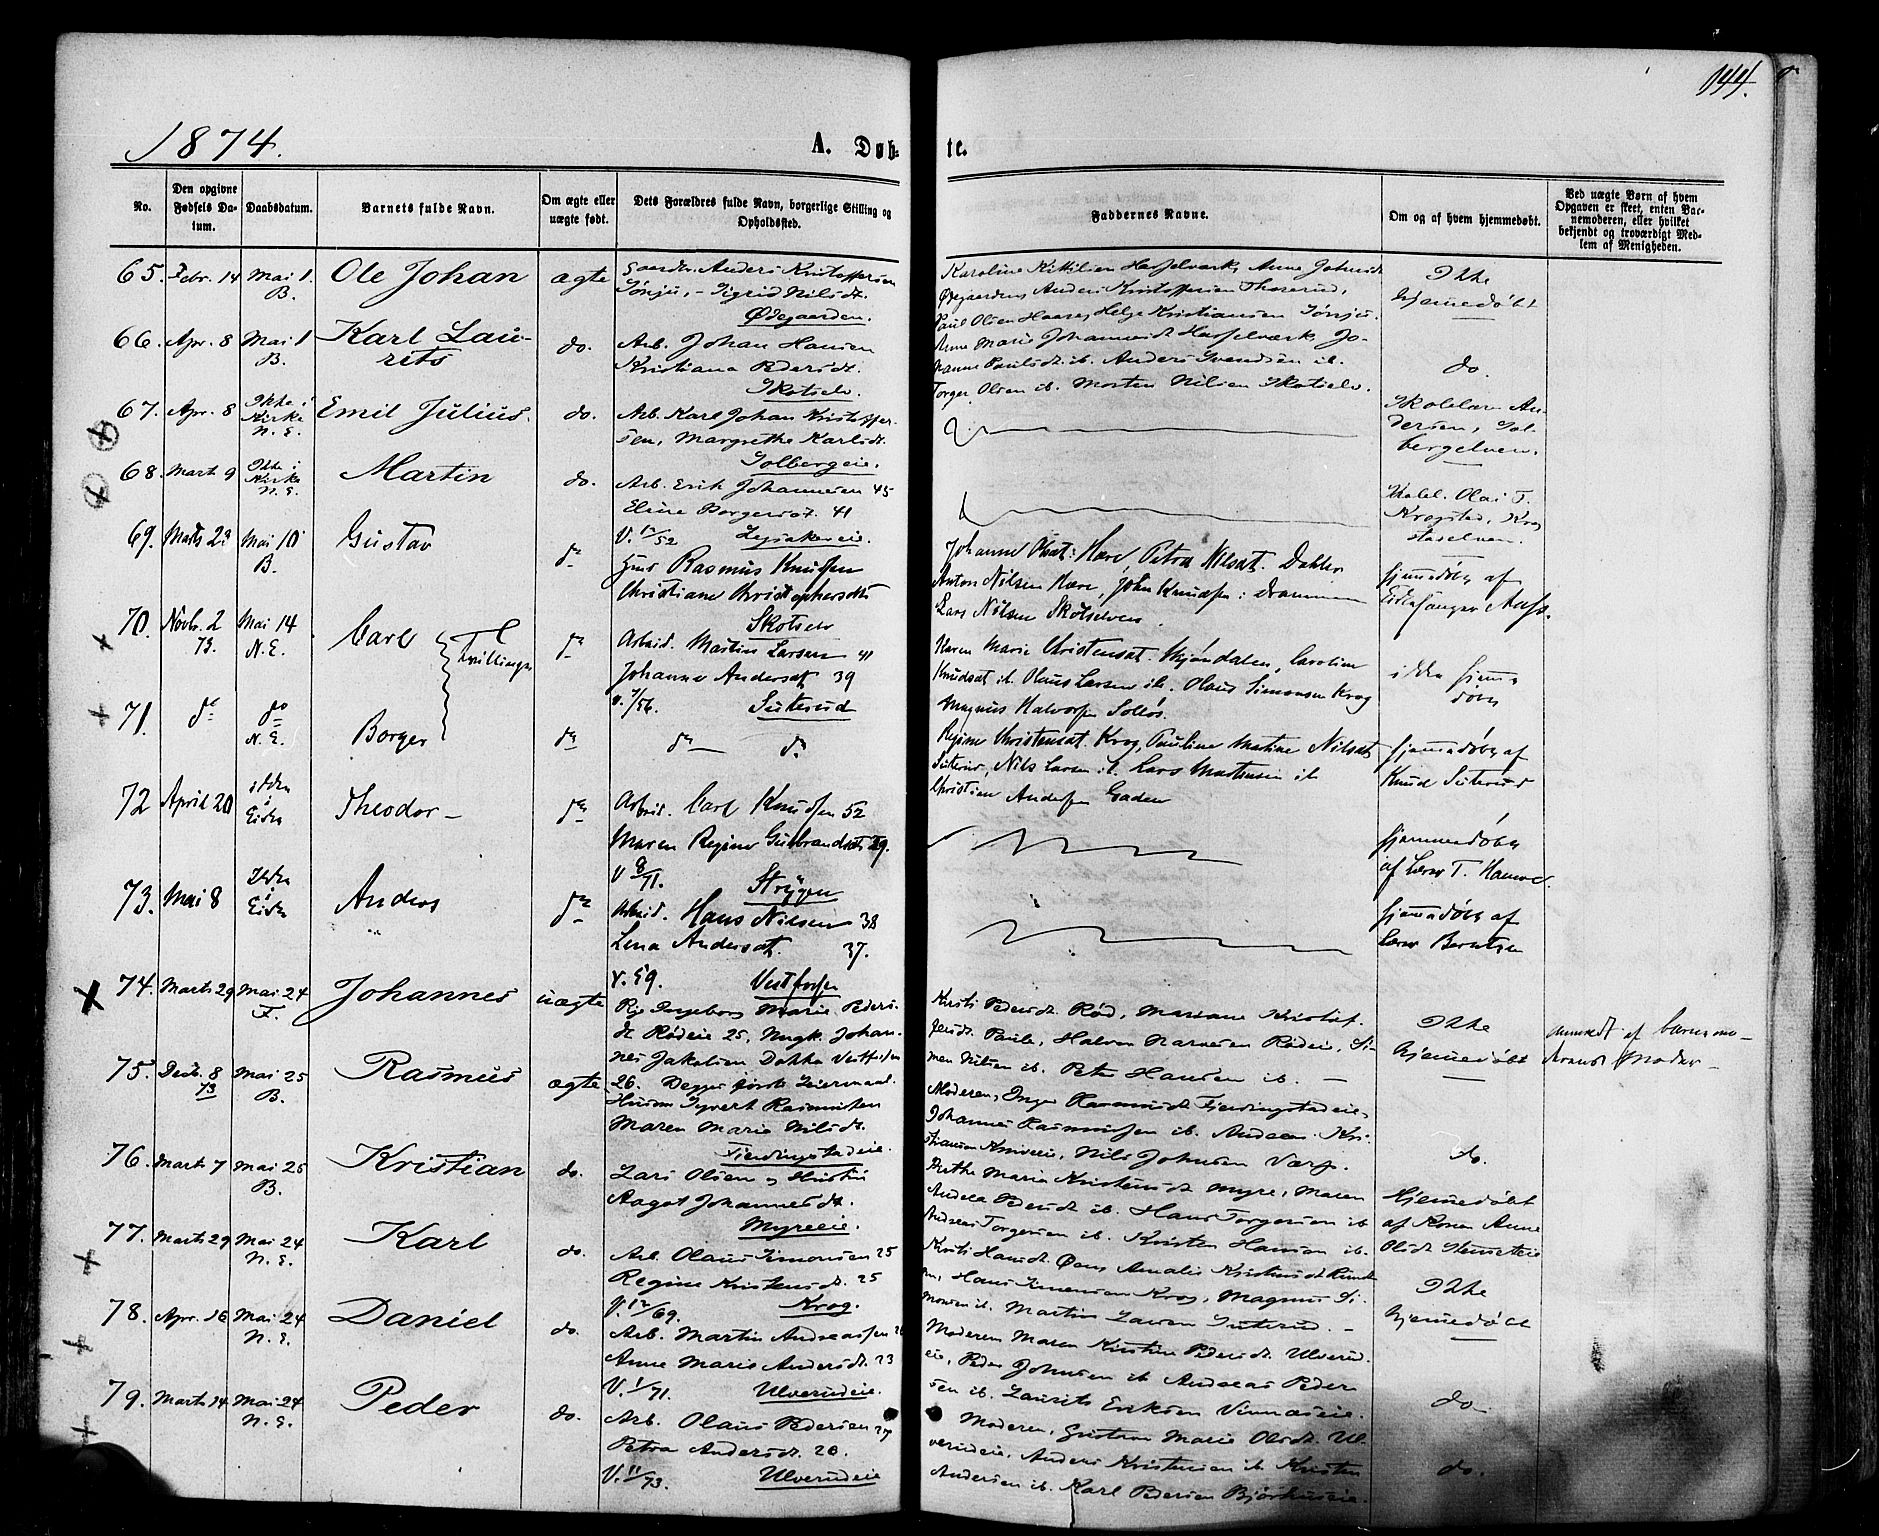 144.
1874.
A. Døb-
te.
No.
Den opgivne Fødsels Da-
tum.
Daabsdatum.
Barnets fulde Navn.
Om ægte eller
uægte født.
Dets Forældres fulde Navn, borgerlige Stilling og
Opholdssted.
Faddernes Navne.
Om og af hvem hjemmedøbt.
Ved uægte Børn af hvem
Opgaven er skeet, enten Bar-
nemoderen, eller hvilket
bekjendt og troværdigt Med-
lem af Menigheden.
65. Febr. 14 Mai 1. B. Ole Johan ægte
Gaardbr. Anders Kristoffersen
Sønju, - Sigrid Nilsdt.
Ødegaarden.
Karoline Kittilsen Hasselværk, Anne Johnsdt
Ødegaarden, Anders Kristoffersen Thorerud,
Paul Olsen Haare, Helge Kristiansen Sønju.
Ikke
hjemmedøbt
66. Apr. 8 Mai 1 B. Karl Lau-
rits do.
Arb. Johan Hansen
Kristiana Pedersdt.
Skotselv
Anne Marie Johannesdt Hasselværk Jo-
hanne Paulsdt ib. Anders Svendsen ib.
Torger Olsen ib. Morten Nilsen Skotselv.
do.
67. Apr. 8 Ikke i
Kirke
N. E. Emil Julius. do.
Arb. Karl Johan Kristoffer-
sen, Margrethe Karlsdt.
Solbergeie.
Skolelær. An-
dersen, Sol-
bergelven.
68. Marts 9 Ikke i
Kirke
N. E. Martin do.
Arb. Erik Johannesen 45
Eline Borgersdt. 41
V. 12/52
Skolel. Olai T.
Krogstad, Krog
stadelven.
69. Marts 23 Mai 10 B. Gustav do
Rasmus Knudsen
Christiane Christophersdt
Skotselv
Johanne Olsdt: Hære, Petra Nilsdt. Dahler
Anton Nilsen Hære, John Knudsen i Drammen
Lars Nilsen Skotselven.
hjemmedøbt af
70. Novbr. 2
73. Mai 14
N. E. Carl Tvillinger do
Arbeid. Martin Larsen 41
Johanne Andersdt 39
V. /56. Suterud
Karen Marie Christensdt. Mjøndalen, Caroline
Knudsdt ib. Olaus Larsen ib. Olaus Simonsen Krog
Magnus Halvorsen Solløs.
ikke hjemme
døbt
71. do do
N. E. Borger do do do
Regine Christensdt. Krog, Pauline Martine Nilsdt
Suterud, Nils Larsen ib. Lars Martinsen ib
Christian Andersen Gaden
hjemmedøbt af
Knud Suterud
72 April 20 ikke
i
Kirke Theodor - do
Arbeid. Carl Knudsen 52
Maren Regine Gulbrandsdt 29.
V 8/71. Strygen
hjemmedøbt
af Lærer T. Hamre.
73. Mai 8 Ikke
i
Kirke Anders do
Arbeid. Hans Nilsen 38
Lena Andersdt. 37.
V. 59. Vestfossen
hjemmedøbt af
Lærer Berntsen
74. Marts 29 Mai 24
F. Johannes uægte
Pige Ingeborg Marie Peders-
dt Rødeie 25, Ungk. Johan-
nes Jakobsen Dokka Vestfossen
26. Begges første Leiermaal.
Kirsti Pedersdt. Rød, Mariane Kristof-
fersdt. Paule, Halvor Rødeie, Si-
men Nilsen ib. Peter Hansen ib. -
Ikke
hjemmedøbt
anmeldt af barnemo-
derens Moder -
75. Decb. 8
73 Mai 25
B. Rasmus ægte
Husm. Syvert Rasmussen
Maren Marie Nilsdt.
Fierdingstadeie.
Moderen, Inger Rasmusdt. Fierdingstadeie,
Johannes Rasmussen ib. Andreas Kri-
stiansen Kniveeie, Nils Johnsen Varp.
do.
76. Marts 7 Mai 25
B. Kristian do.
Lars Olsen og Hustru
Aagot Johannesdt.
Myreeie.
Grethe Maria Kristensdt Myre, Maren
Andrea Pedersdt ib. Hans Torgersen ib
Andreas Torgersen ib. Kristen Hansen ib.
Hjemmedøbt
af Konen Anne
Olsdt.
77. Marts 29 Mai 24
N. E. Karl do.
Arb. Olaus Simonsen 25
Regine Kristensdt. 25
V. 12/69. Krog.
Kirsti Hansdt. Amalie Kristensdt
Hans Simensen Krog, Magnus Si-
monsen ib. Martin Larsen Suterud. -
Ikke
hjemmedøbt
78. Apr. 16 Mai 24
N. E. Daniel do.
Arb. Martin Andreassen
Anne Marie Andersdt. 23
V. 1/71. Ulverudeie.
Moderen Maren Kirstine Pedersdt. Ulverud-
eie, Peder Johnsen ib Andreas Peder-
sen ib. Laurits Eriksen Vinnæseie.
do
79. Marts 14 Mai 24
N. E. Peder do.
Arb. Olaus Pedersen 27
Petra Andersdt. 26.
V. 11/73. Ulverudeie
Moderen, Gustava Marie Olsdt. Ul-
verudeie, Anders Kristensen ib Kristen
Andersen ib. Karl Pedersen Bjørhuseie.
do.